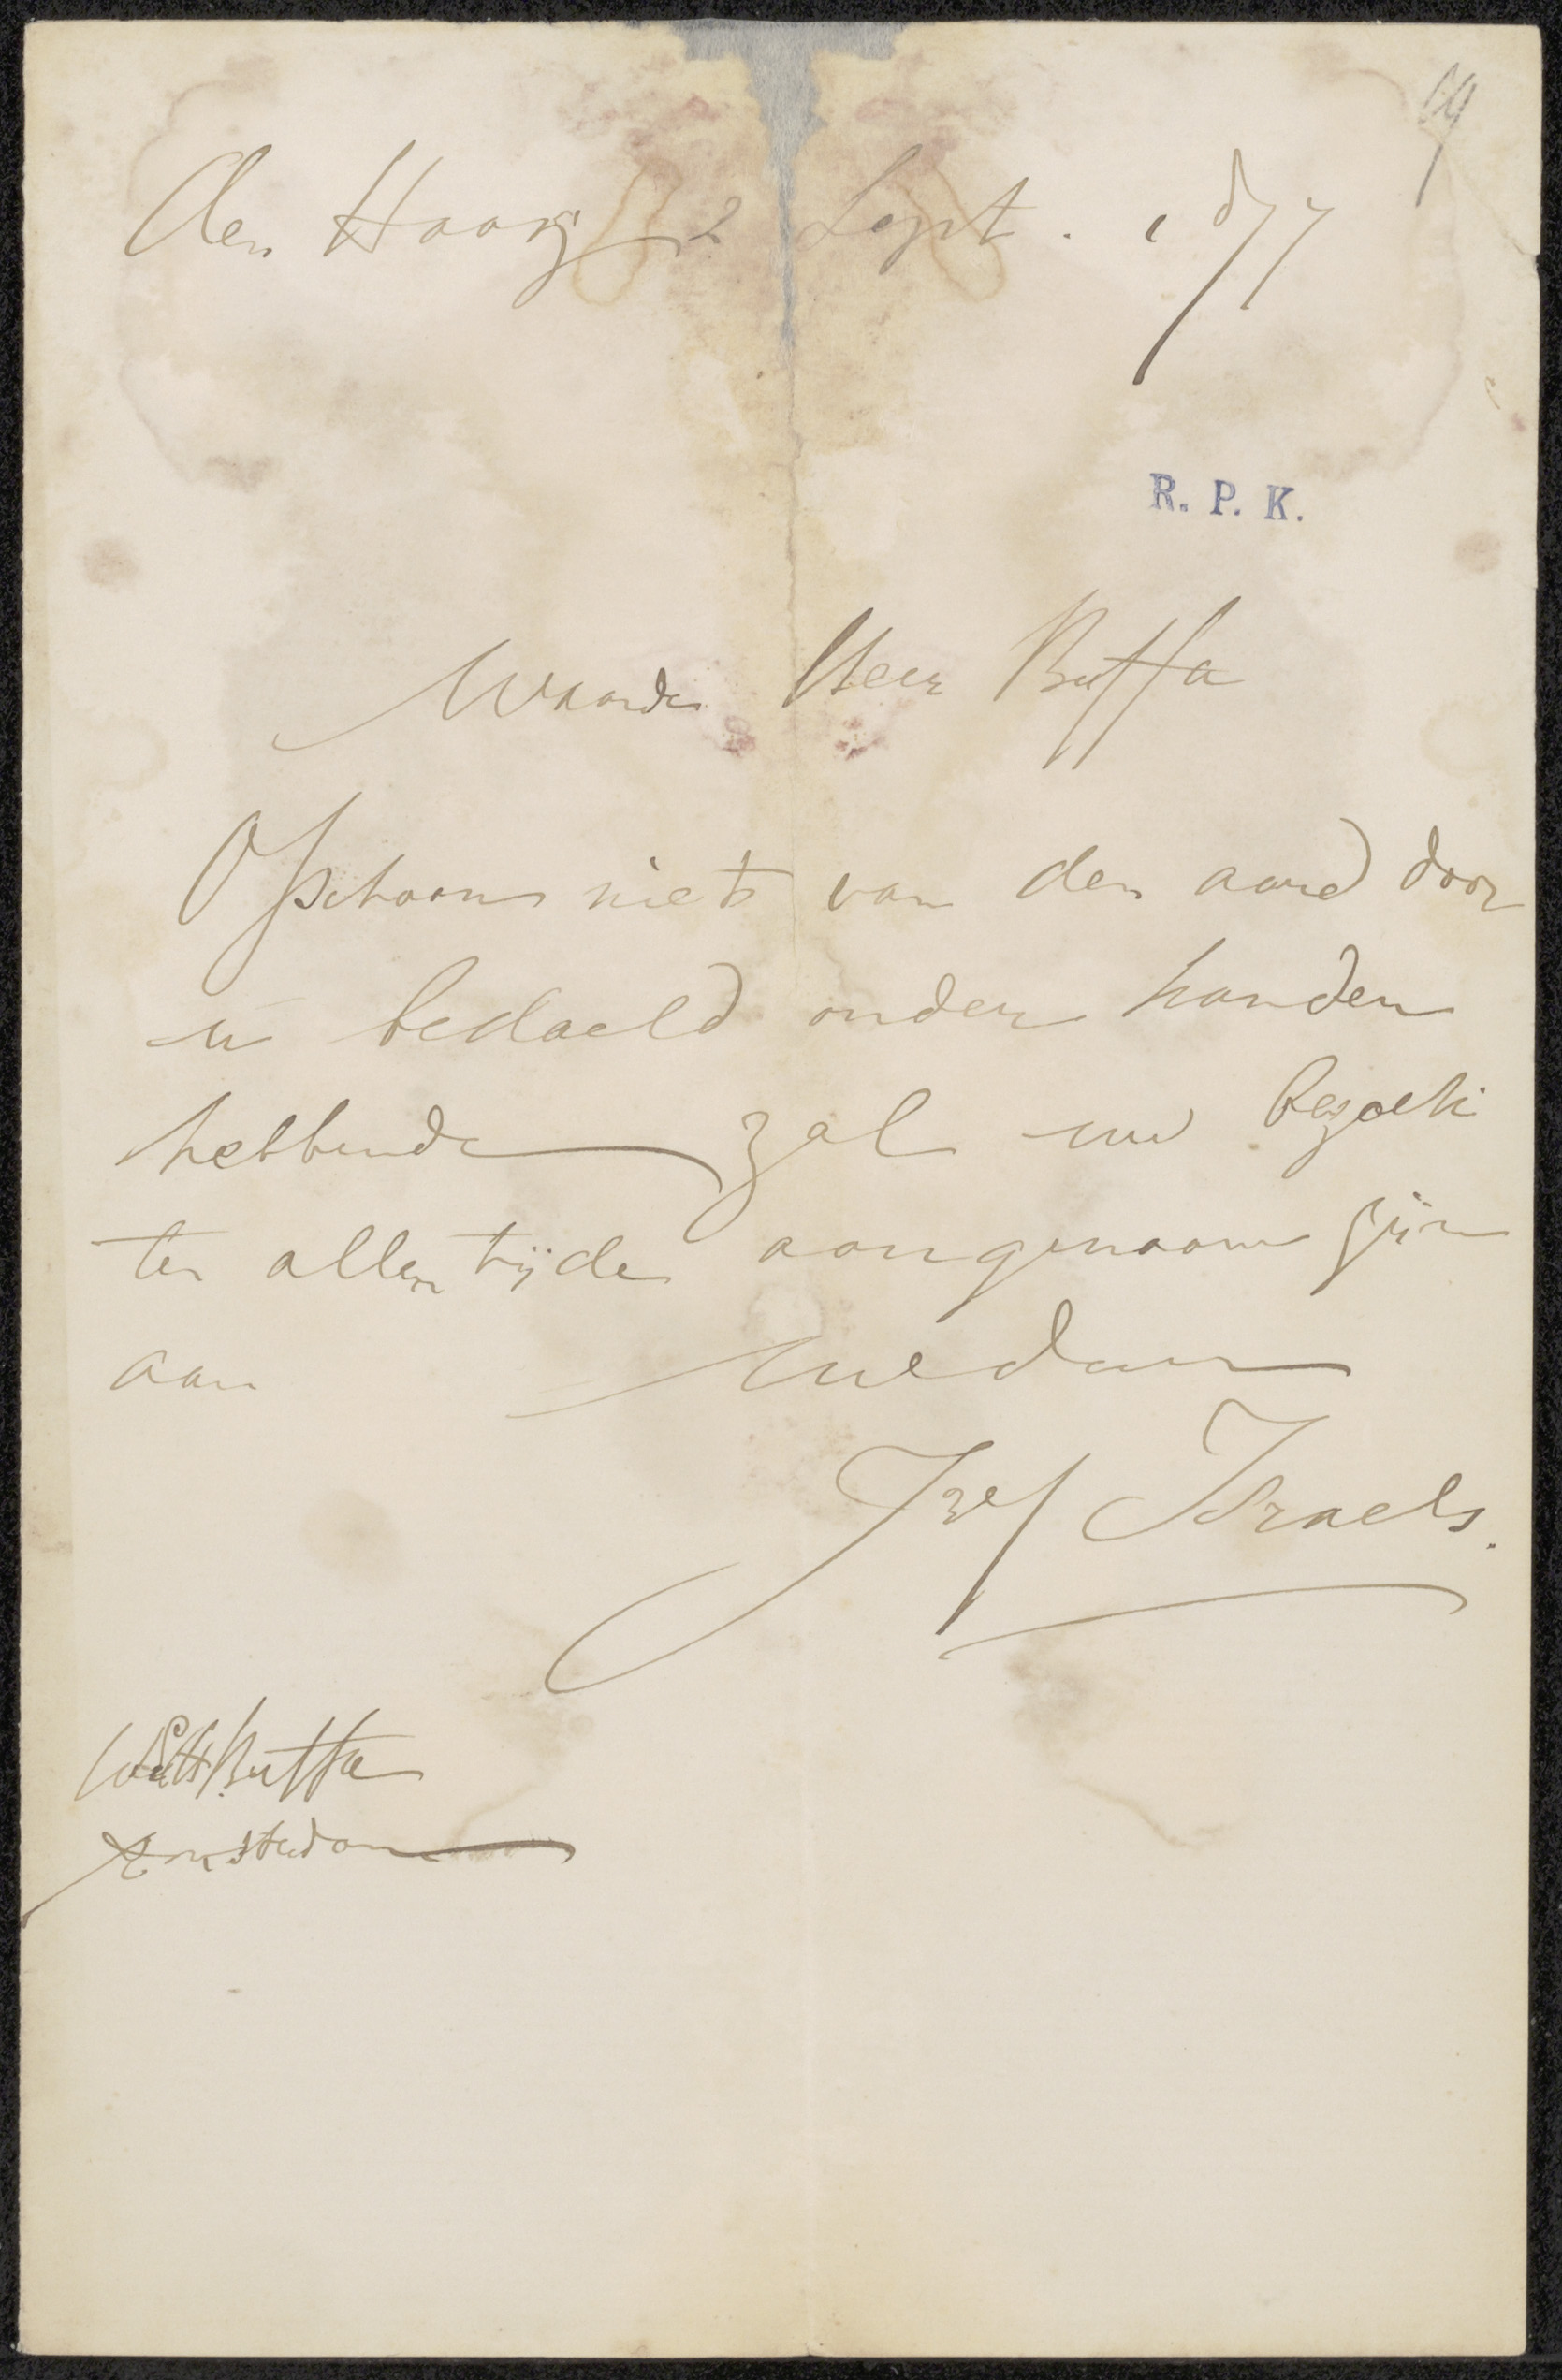 19
den Haag 2 Sept. 1877
R. P. K.
Waarde Heer Buffa
Ofschoon niets van den aard door
u bedoeld onder handen
hebbende zal uw bezoek
ten allen tijde aangenaam zijn
aan Uwedien
Jozef Israels.
Buffa
Amsterdam